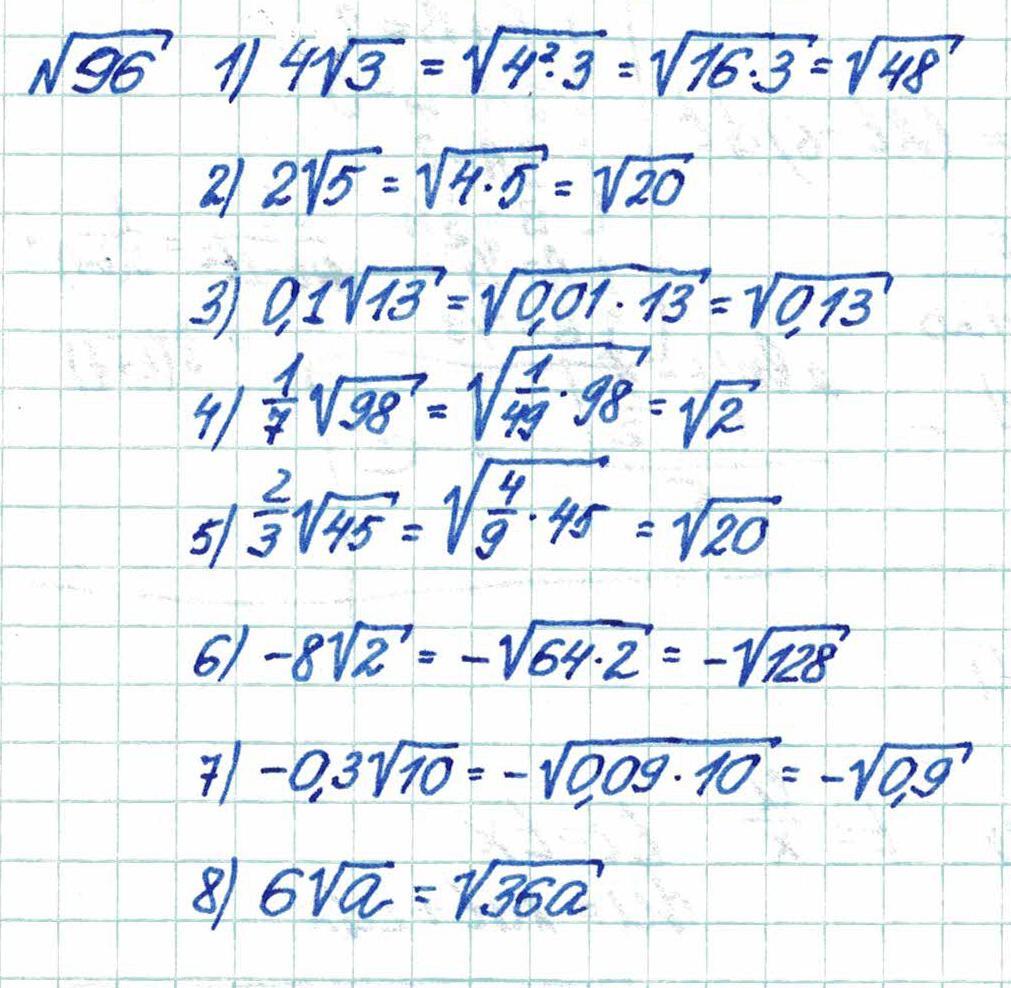 √96 1) 4√3 = √4²·3 = √16·3 = √48
2) 2√5 = √4·5 = √20
3) 0,1√13 = √0,01·13 = √0,13
4) 1/7 √98 = √1/49·98 = √2
5) 2/3 √45 = √4/9·45 = √20
6) -8√2 = -√64·2 = -√128
7) -0,3√10 = -√0,09·10 = -√0,9
8) 6√a = √36a